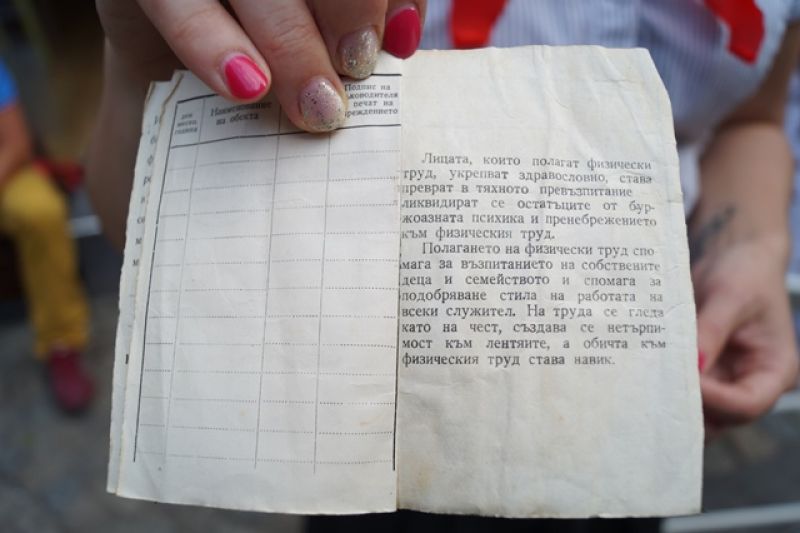 ден
месец
година
Наименование
на обекта
Подпис на
ръководителя
печат на
учреждението
Лицата, които полагат физически
труд, укрепват здравословно, става
преврат в тяхното превъзпитание
ликвидират се остатъците от бур-
жоазната психика и пренебрежението
към физическия труд.
Полагането на физически труд спо-
мага за възпитанието на собствените
деца и семейството и спомага за
подобряване стила на работата на
всеки служител. На труда се гледа
като на чест, създава се нетърпи-
мост към лентяите, а обичта към
физическия труд става навик.